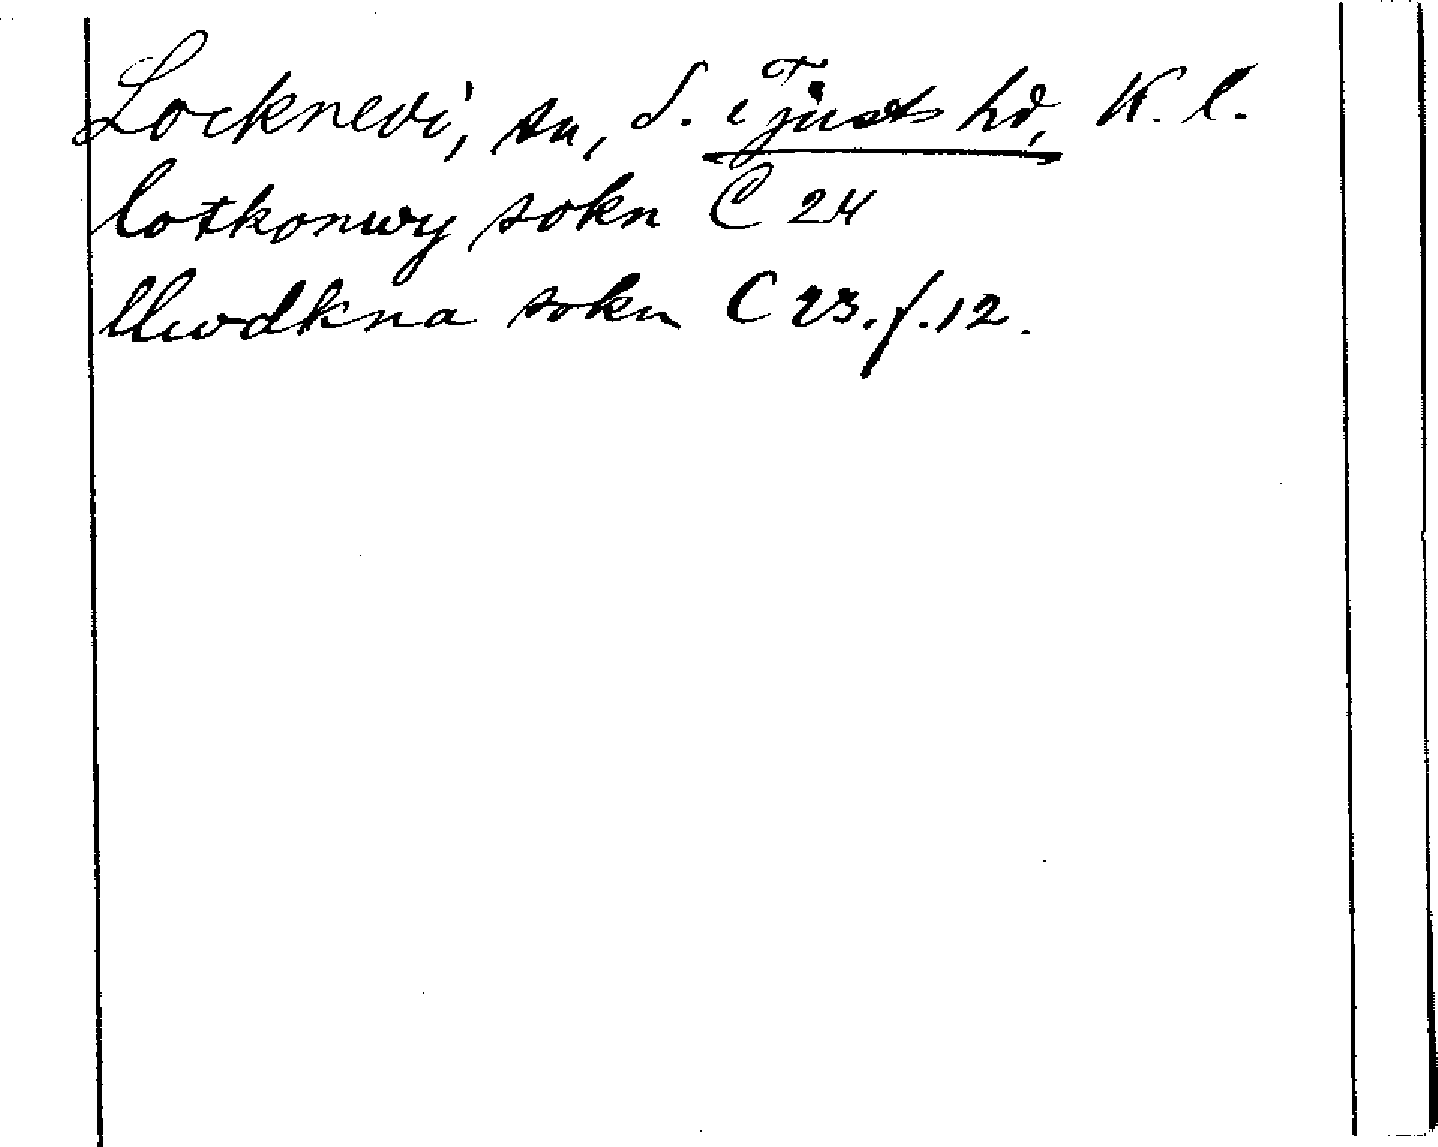 Locknevi, sn, S. Tjusts hd, K. l.
lotkonwy sokn C 24
sokn C 23. f. 12.